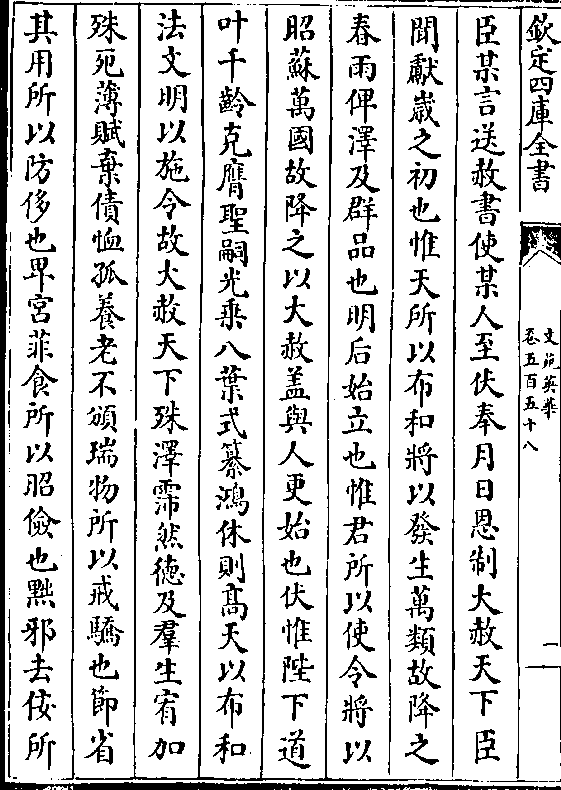 欽定四庫全書
文苑英華
卷五百五十八
一
臣某言送赦書使某人至伏奉月日恩制大赦天下臣
聞獻歲之初也惟天所以布和將以發生萬類故降之
春雨俾澤及群品也明后始立也惟君所以使令將以
昭蘇萬國故降之以大赦盖與人更始也伏惟陛下道
叶千齡克膺聖嗣光乗八葉式纂鴻休則髙天以布和
法文明以施令故大赦天下殊澤霈然德及羣生宥加
殊死薄賦棄債恤孤養老不頒瑞物所以戒驕也節省
其用所以防侈也卑宮菲食所以昭儉也黜邪去佞所